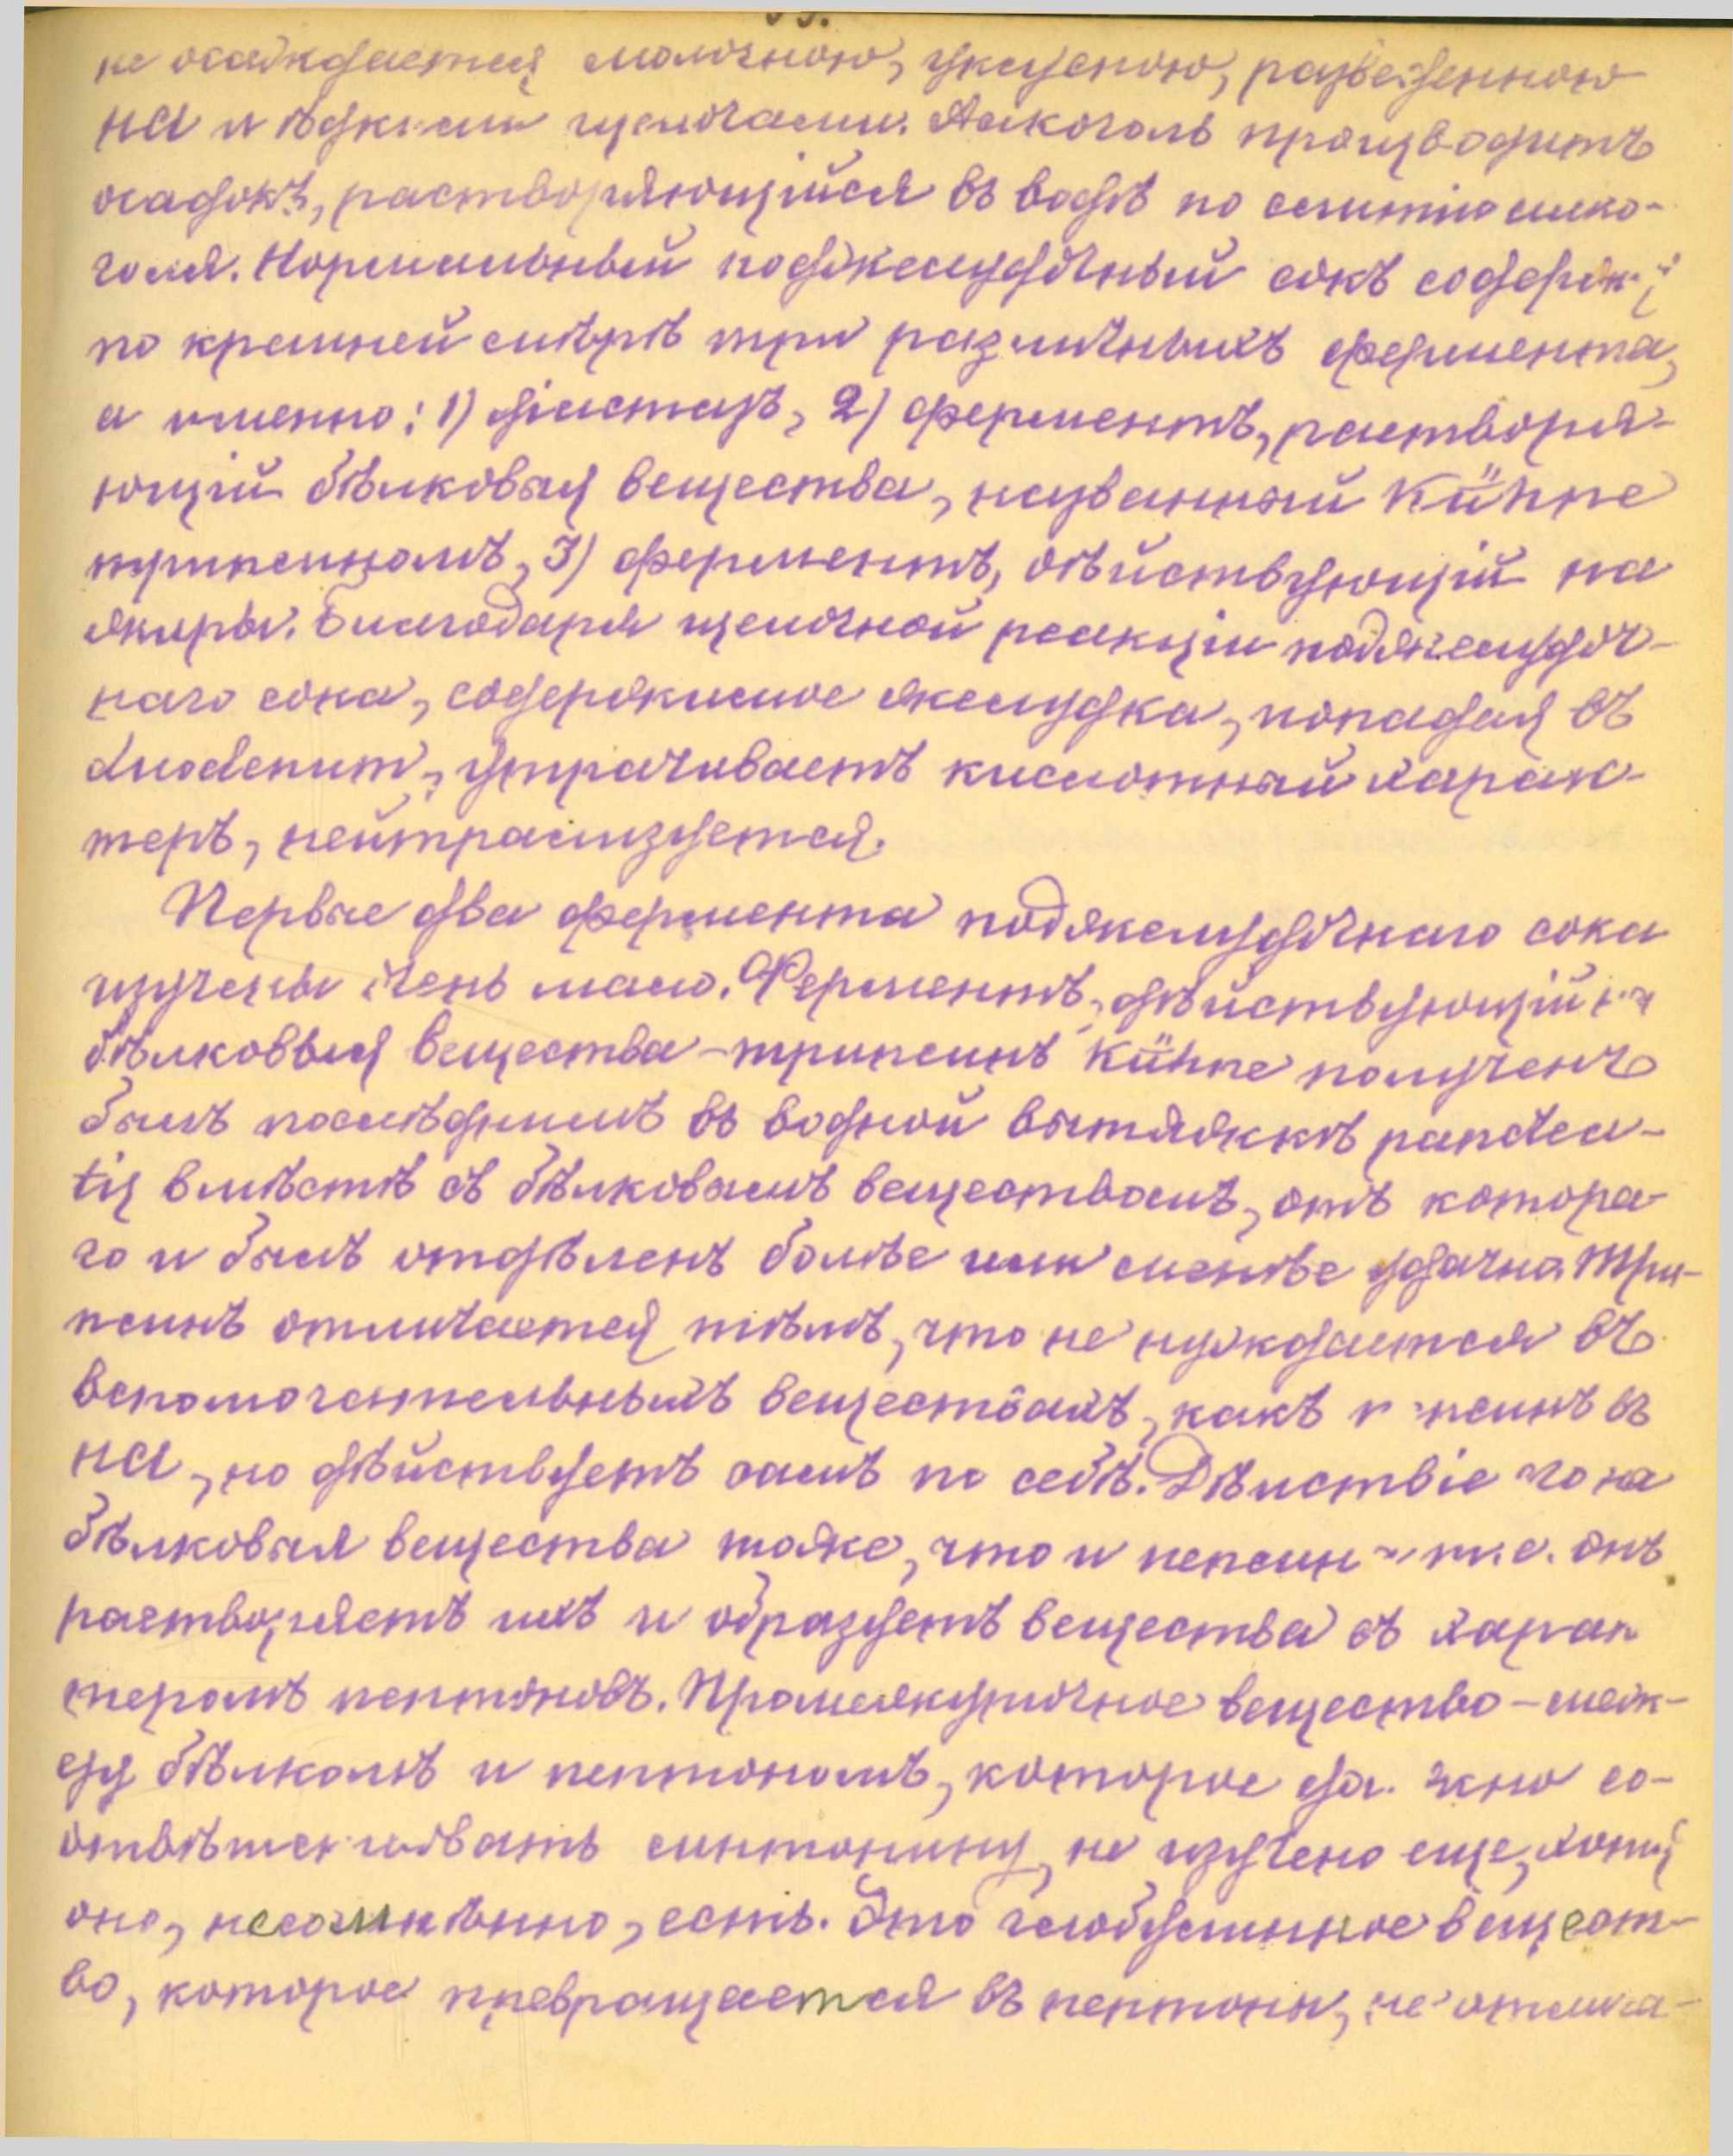 не осаждается молочною, уксусною, разведенною
HCl и ѣдкими щелочами. Алкоголь производитъ
осадокъ, растворяющійся въ водѣ по слитію алко-
голя. Нормальный поджелудочный сокъ содерж.
по крайней мѣрѣ три различныхъ фермента,
а именно: 1) діастазъ, 2) ферментъ, растворя-
ющій бѣлковыя вещества, названный Kühne
трипсиномъ, 3) ферментъ, дѣйствующій на
жиры. Благодаря щелочной реакціи поджелудоч-
наго сока, содержимое желудка, попадая въ
duodenum, утрачиваетъ кислотный харак-
теръ, нейтрализуется.
Первые два фермента поджелудочнаго сока
изучены очень мало. Ферментъ, дѣйствующій на
бѣлковыя вещества - трипсинъ Kühne полученъ
былъ послѣднимъ въ водной вытяжкѣ pancrea-
tis вмѣстѣ съ бѣлковымъ веществомъ, отъ котора-
го и былъ отдѣленъ болѣе или менѣе удачно. Три-
псинъ отличается тѣмъ, что не нуждается въ
вспомогательныхъ веществахъ, какъ пепсинъ въ
HCl, но дѣйствуетъ самъ по себѣ. Дѣйствіе его на
бѣлковыя вещества тоже, что и пепсина т.е. онъ
растворяетъ ихъ и образуетъ вещества съ харак
теромъ пептоновъ. Промежуточное вещество - меж-
ду бѣлкомъ и пептономъ, которое должно со-
отвѣтствовать синтонину, не изучено еще, хотя
оно, несомнѣнно, есть. Это глобулинное вещест-
во, которое превращается въ пептоны, не отлича-